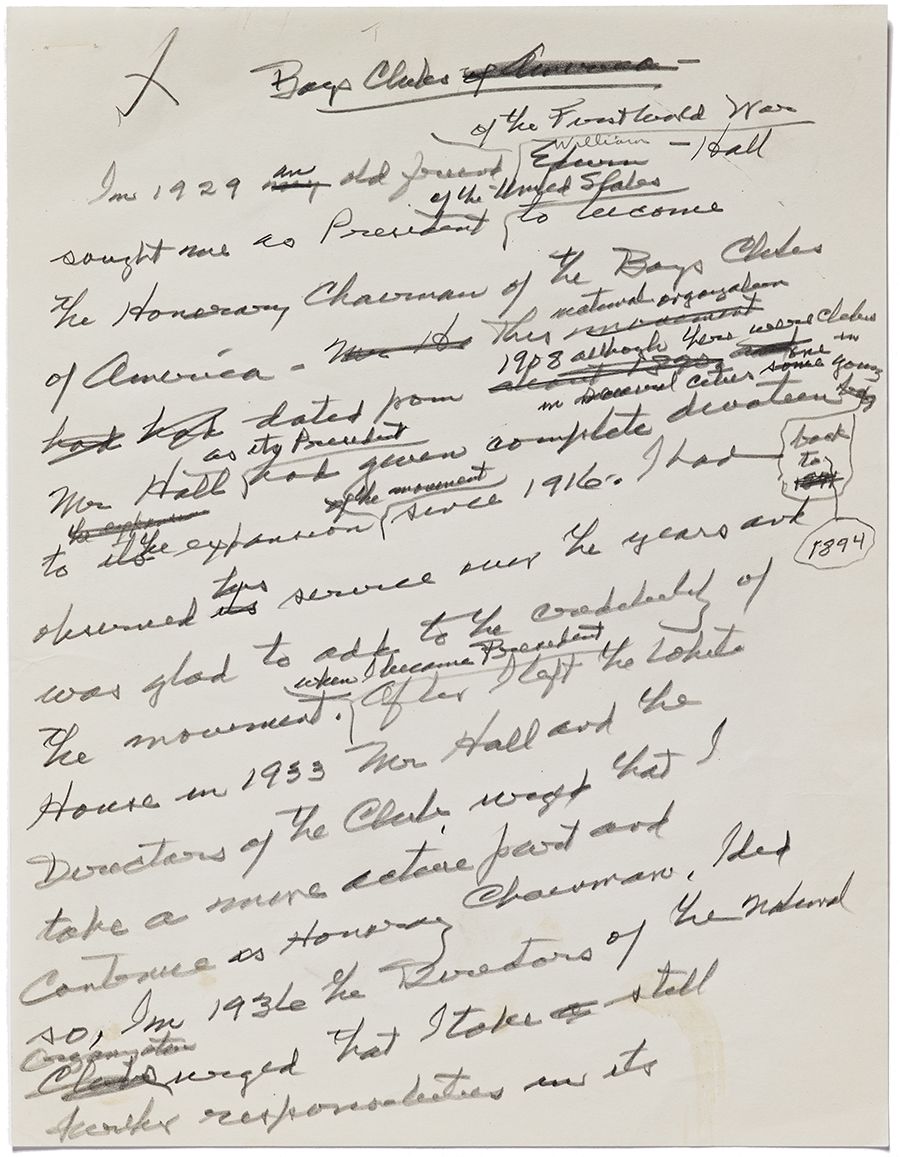 Boys Clubs of America -
of the First World War
William
In 1929 an my old friend Edwin - Hall
of the United States
sought me as President to become
the Honorary Chairman of the Boys Clubs
national organization
of America - Mr H This movement
1908 although there were Clubs
had dated from about
in several cities some one in
as its President
young
Mr Hall had given complete devotion
back
to
of the movement
the expansion
to the expansion since 1916. I had
1894
observed his its service over the years and
was glad to add to the credability of
when I became President
the movement. After I left the White
House in 1933 Mr Hall and the
Directors of the Club urged that I
take a more active part and
continue as Honorary Chairman. I did
so, In 1936 the Directors of the National
Organization
Clubs urged that I take a still
further responsibilities in its